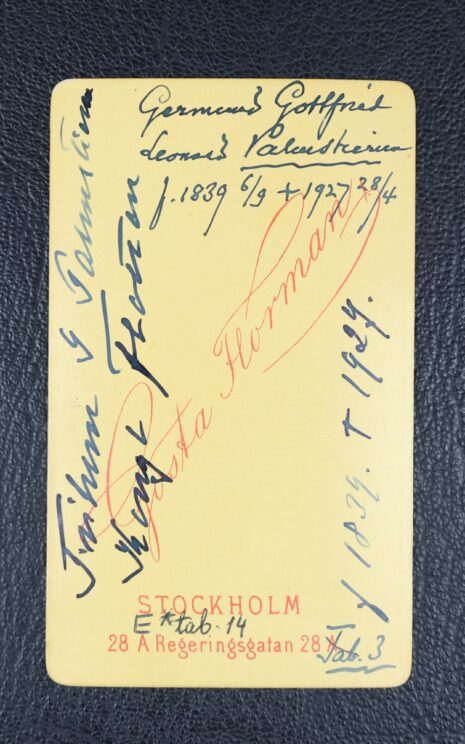 Germund Gottfried
Leonard Palmstierna
f. 1839 6/9 + 1927 28/4
Friherre G Palmstierna
Kongl Flottan
f 1839. + 1927.
Gösta Florman
STOCKHOLM
E*tab. 14
28 A Regeringsgatan 28 A
Tab. 3